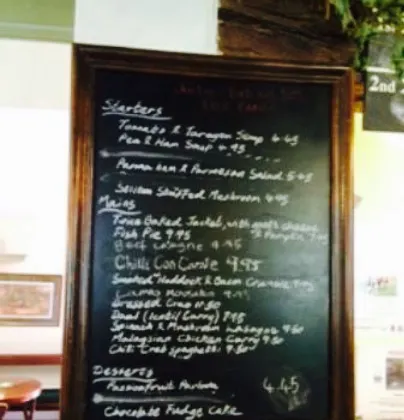 Starters
Tomato & Tarragon Soup 4.45
Pea & Ham Soup 4.95
Parma Ham & Parmesan Salad 5.45
Stuffed Mushroom 4.95
Mains
Baked Jacket, with goats cheese
& Pumpkin 7.95
Fish Pie 9.95
Beef Lasagne 9.95
Chilli Con Carnie 9.95
Smoked Haddock & Bacon
Lamb Moussaka 9.95
Dressed Crab
Daal (lentil Curry) 7.95
Spinach & Mushroom Lasagne
Malaysian Chicken Curry
Chilli Crab spaghetti
Desserts
Passionfruit Pavlova 4.45
Chocolate Fudge Cake
2nd